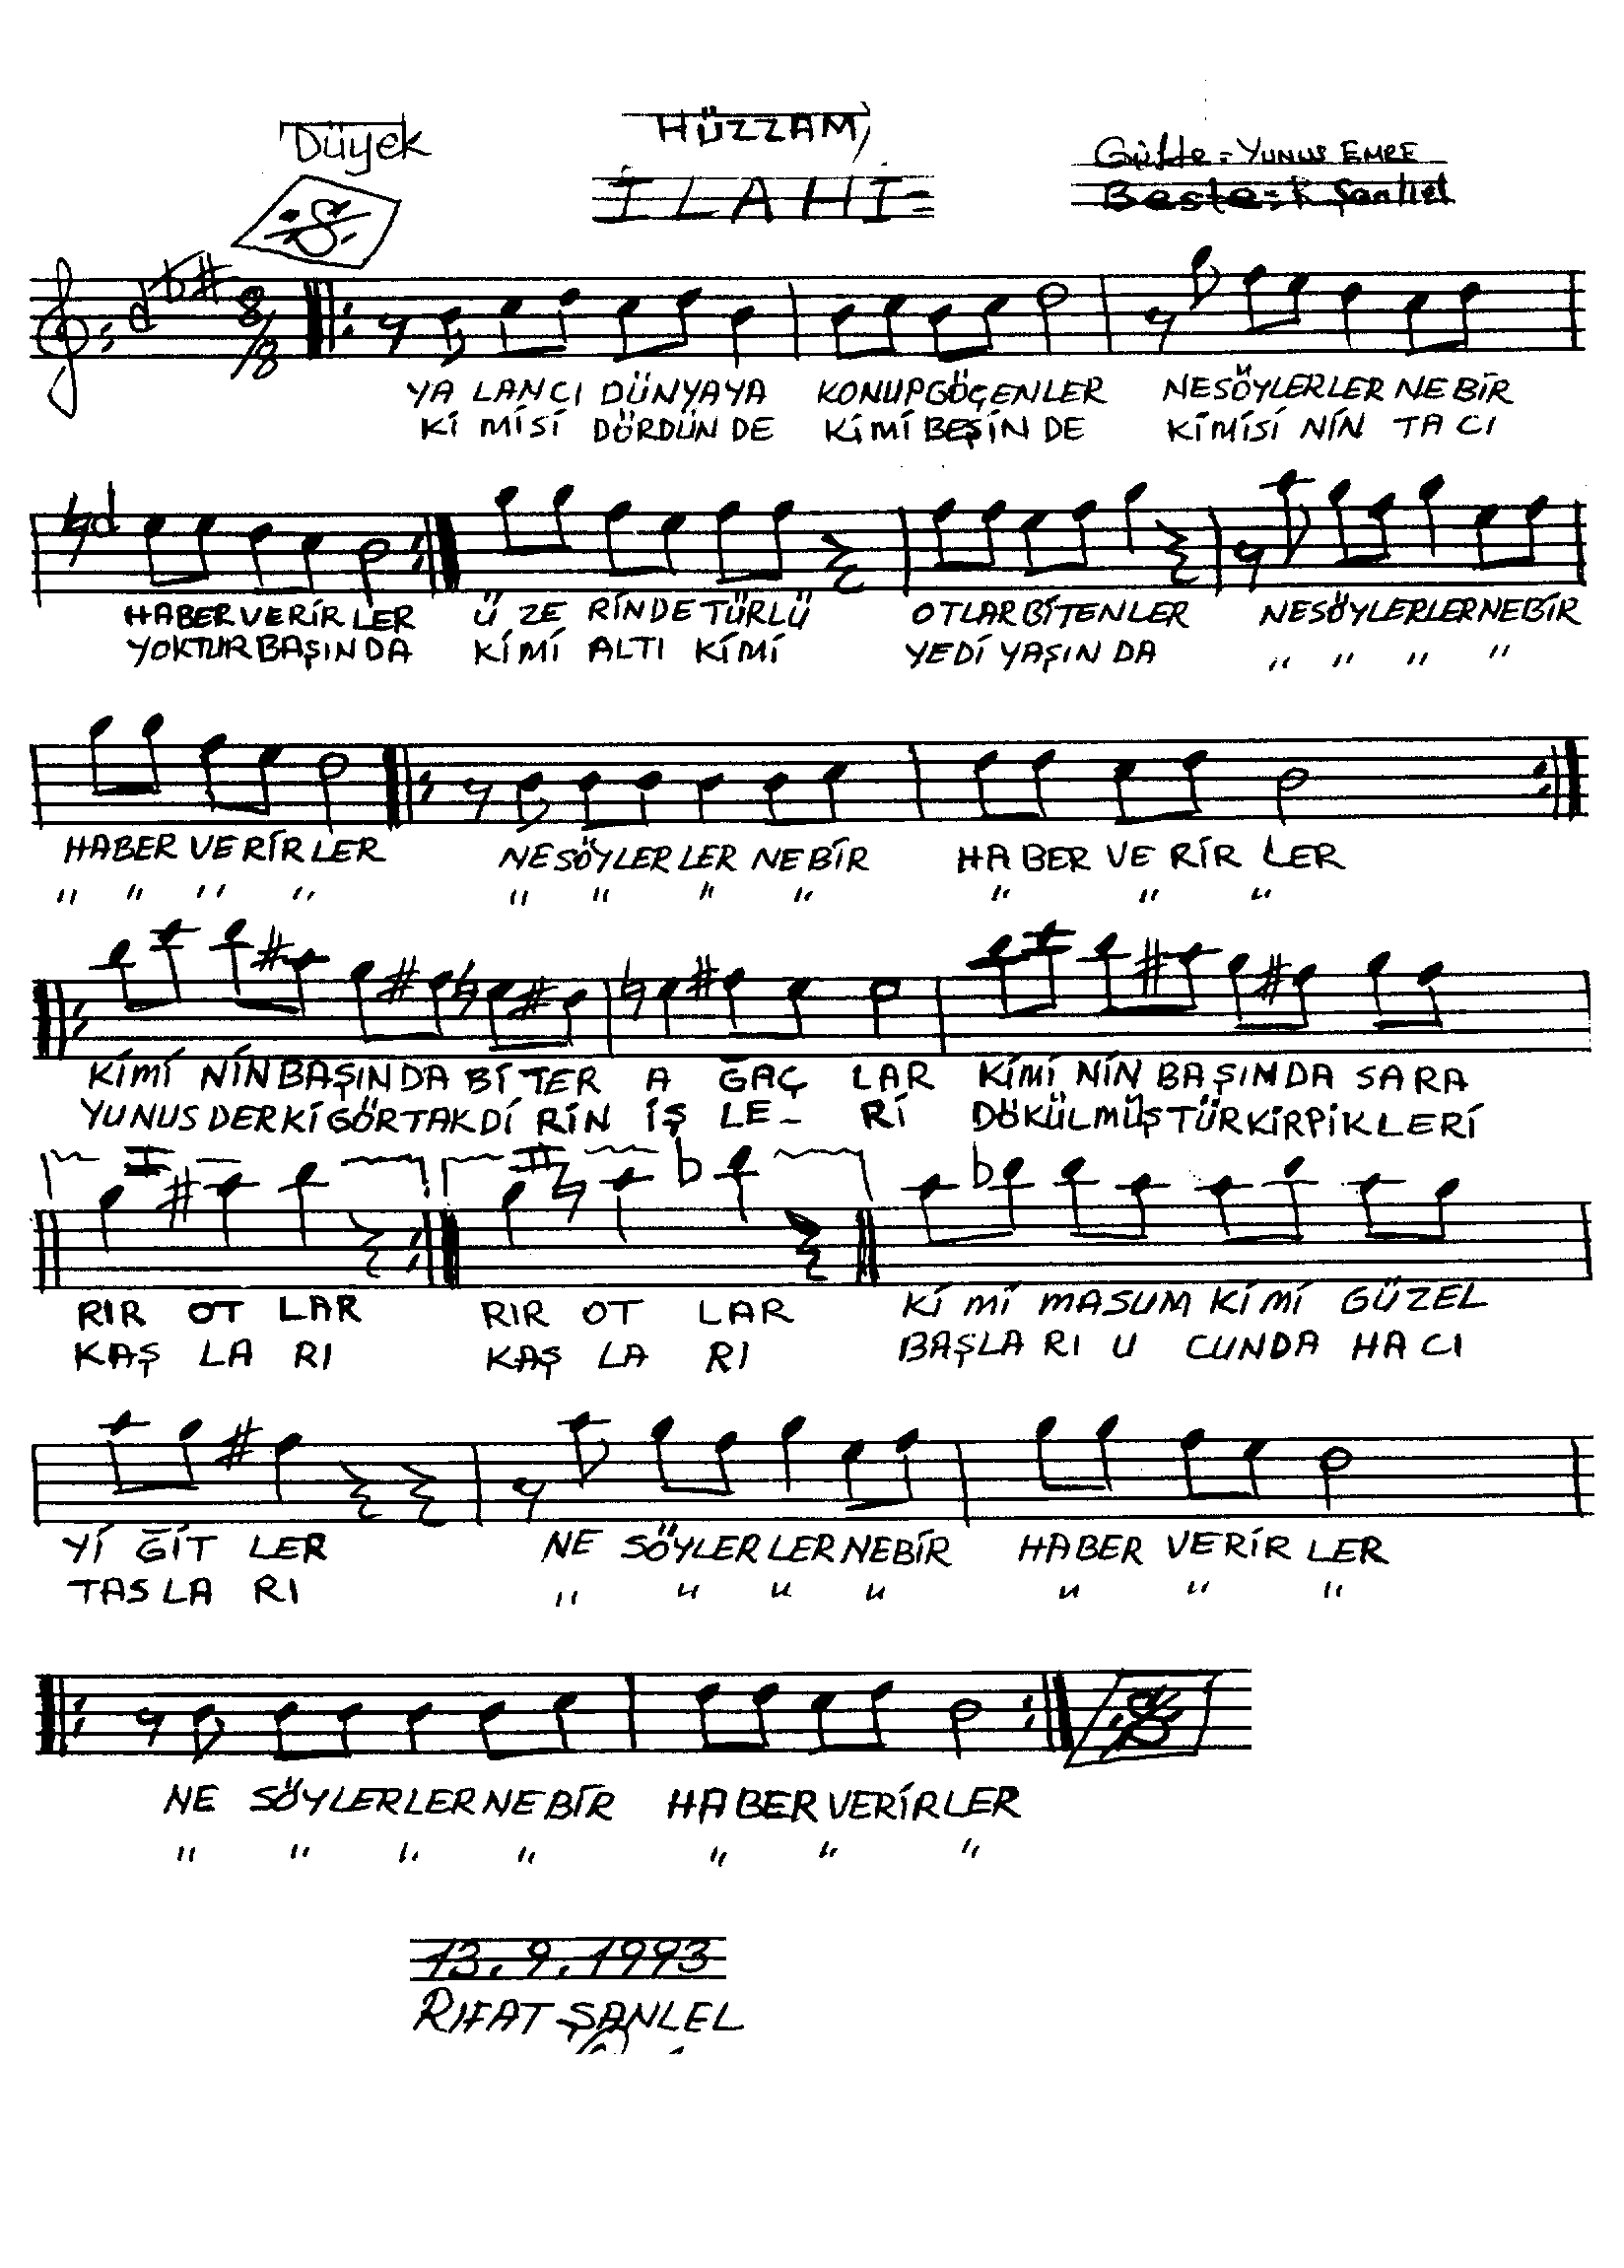 Düyek
HÜZZAM
İLAHİ
Güfte = YUNUS EMRE
Beste = R Şanlıel
8/8
YA LANCI DÜNYAYA KONUPGÖÇENLER NESÖYLERLER NEBİR
Kİ MİSİ DÖRDÜN DE KİMİ BEŞİN DE KİMİSİ NİN TA CI
HABER VERİR LER Ü ZE RİNDE TÜRLÜ OTLAR BİTENLER NESÖYLERLERNEBİR
YOKTUR BAŞINDA KİMİ ALTI KİMİ YEDİ YAŞIN DA " " " "
HABER VERİR LER NESÖYLER LER NEBİR HA BER VE RİR LER
" " " " " " " " " " "
KİMİ NİN BAŞINDA BİTER A ĞAÇ LAR KİMİ NİN BAŞINDA SARA
YUNUS DERKİ GÖRTAKDİ RİN İŞ LE- Rİ DÖKÜLMÜŞTÜR KİRPİKLERİ
I II
RIR OT LAR RIR OT LAR Kİ Mİ MASUM KİMİ GÜZEL
KAŞ LA RI KAŞ LA RI BAŞLA RI U CUNDA HA CI
Yİ ĞİT LER NE SÖYLER LER NEBİR HABER VERİR LER
TAS LA RI " " " " " " "
NE SÖYLERLER NEBİR HABER VERİRLER
" " " " " " "
13.9.1993
RIFAT ŞANLEL